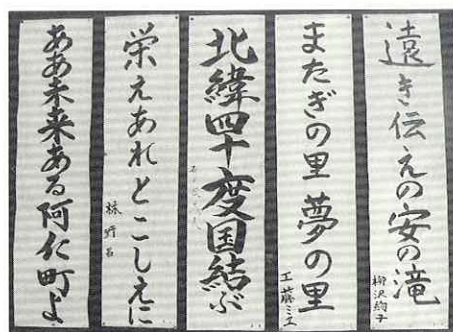 遠き伝えの安の滝
柳沢絢子
またぎの里夢の里
工藤ミエ
北緯四十度国結ぶ
栄えあれとこしえに
ああ未来ある阿仁町よ